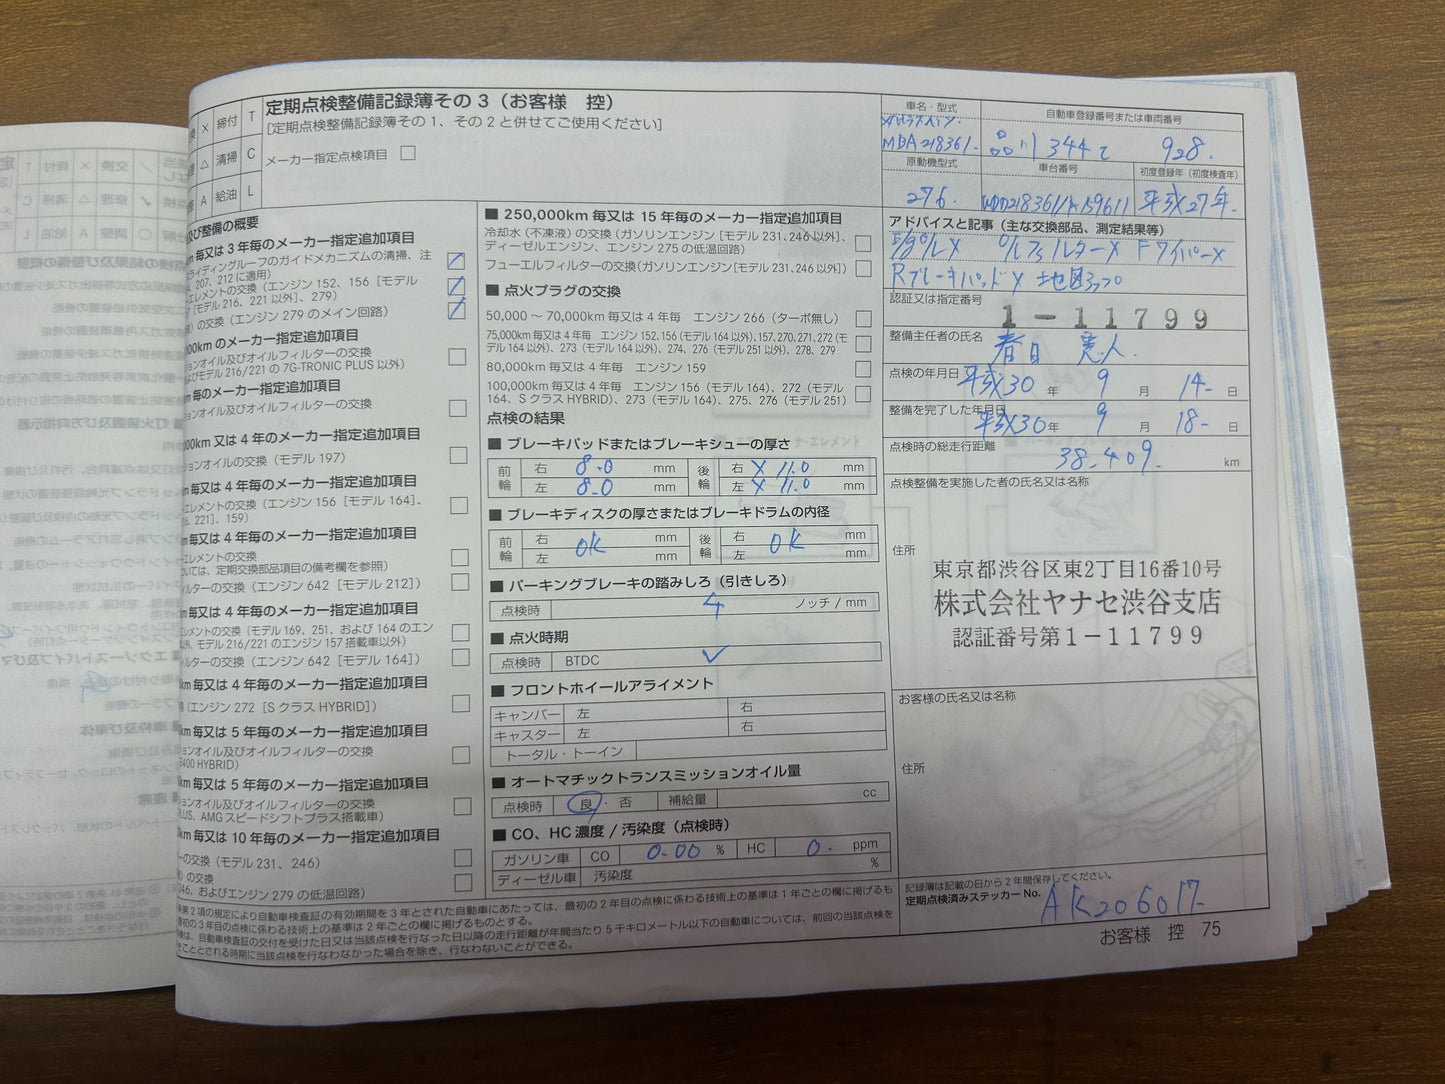 換 × 締付 T
△ 清掃 C
A 給油 L
定期点検整備記録簿その 3（お客様　控）
[定期点検整備記録簿その 1、その 2 と併せてご使用ください]
メーカー指定点検項目 □
車名・型式
MBA218361.
自動車登録番号または車両番号
品川 344 て 928.
原動機型式
276.
車台番号
初度登録年（初度検査年）
平成27年.
及び整備の概要
km 毎又は 3 年毎のメーカー指定追加項目
ライディングルーフのガイドメカニズムの清掃、注
、207、212 に適用）
-エレメントの交換（エンジン 152、156［モデル
［モデル 216、221 以外］、279）
の交換（エンジン 279 のメイン回路）
000km のメーカー指定追加項目
ョンオイル及びオイルフィルターの交換
およびモデル 216/221 の 7G-TRONIC PLUS 以外）
km 毎のメーカー指定追加項目
ョンオイル及びオイルフィルターの交換
000km 又は 4 年のメーカー指定追加項目
ションオイルの交換（モデル 197）
km 毎又は 4 年毎のメーカー指定追加項目
-エレメントの交換（エンジン 156［モデル 164］、
16、221］、159）
km 毎又は 4 年毎のメーカー指定追加項目
-エレメントの交換
ついては、定期交換部品項目の備考欄を参照）
ィルターの交換（エンジン 642［モデル 212］）
km 毎又は 4 年毎のメーカー指定追加項目
エレメントの交換（モデル 169、251、および 164 のエン
以外、モデル 216/221 のエンジン 157 搭載車以外）
ィルターの交換（エンジン 642［モデル 164］）
km 毎又は 4 年毎のメーカー指定追加項目
（エンジン 272［S クラス HYBRID］）
km 毎又は 5 年毎のメーカー指定追加項目
ョンオイル及びオイルフィルターの交換
E400 HYBRID）
km 毎又は 5 年毎のメーカー指定追加項目
ョンオイル及びオイルフィルターの交換
PLUS、AMG スピードシフトプラス搭載車）
km 毎又は 10 年毎のメーカー指定追加項目
ーの交換（モデル 231、246）
の交換
246、およびエンジン 279 の低温回路）
■ 250,000km 毎又は 15 年毎のメーカー指定追加項目
冷却水（不凍液）の交換（ガソリンエンジン［モデル 231、246 以外］、
ディーゼルエンジン、エンジン 275 の低温回路）
フューエルフィルターの交換（ガソリンエンジン［モデル 231、246 以外］）
■ 点火プラグの交換
50,000 ～ 70,000km 毎又は 4 年毎　エンジン 266（ターボ無し）
75,000km 毎又は 4 年毎　エンジン 152、156（モデル 164 以外）、157、270、271、272（モ
デル 164 以外）、273（モデル 164 以外）、274、276（モデル 251 以外）、278、279
80,000km 毎又は 4 年毎　エンジン 159
100,000km 毎又は 4 年毎　エンジン 156（モデル 164）、272（モデル
164、S クラス HYBRID）、273（モデル 164）、275、276（モデル 251）
点検の結果
■ ブレーキパッドまたはブレーキシューの厚さ
前輪 右 8.0 mm 後輪 右 × 11.0 mm
左 8.0 mm 左 × 11.0 mm
■ ブレーキディスクの厚さまたはブレーキドラムの内径
前輪 右 OK mm 後輪 右 OK mm
左 mm 左 mm
■ パーキングブレーキの踏みしろ（引きしろ）
点検時 4 ノッチ / mm
■ 点火時期
点検時 BTDC ✓
■ フロントホイールアライメント
キャンバー 左 右
キャスター 左 右
トータル・トーイン
■ オートマチックトランスミッションオイル量
点検時 良・否 補給量 cc
■ CO、HC 濃度 / 汚染度（点検時）
ガソリン車 CO 0.00 % HC 0. ppm
ディーゼル車 汚染度 %
アドバイスと記事（主な交換部品、測定結果等）
O/フィルター× Fワイパー×
Rブレーキパッド×
認証又は指定番号
1-11799
整備主任者の氏名
春日
点検の年月日 平成30 年 9 月 14 日
整備を完了した年月日 平成30 年 9 月 18 日
点検時の総走行距離
38,409. km
点検整備を実施した者の氏名又は名称
住所
東京都渋谷区東2丁目16番10号
株式会社ヤナセ渋谷支店
認証番号第1-11799
お客様の氏名又は名称
住所
記録簿は記載の日から 2 年間保存してください。
定期点検済みステッカー No. AK206017
第 2 項の規定により自動車検査証の有効期間を 3 年とされた自動車にあたっては、最初の 2 年目の点検に係わる技術上の基準は 1 年ごとの欄に掲げるも
最初の 3 年目の点検に係わる技術上の基準は 2 年ごとの欄に掲げるものとする。
検は、自動車検査証の交付を受けた日又は当該点検を行なった日以降の走行距離が年間当たり 5 千キロメートル以下の自動車については、前回の当該点検を
きこととされる時期に当該点検を行なわなかった場合を除き、行なわないことができる。
お客様　控　75